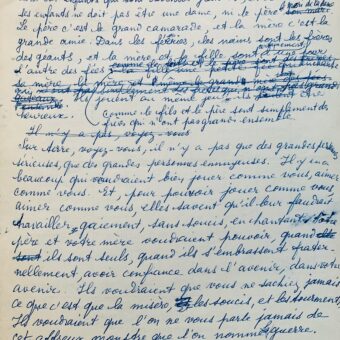 ses enfants ne doit pas être une dame, ni le père
Le père c'est le grand camarade, et la mère c'est la
grande amie. Dans les féeries, les nains sont les frères
des géants, et la mère, et la fille sont
d'autre des fées
la mère
Ils jouent au même jeu
heureux. (comme le fils et le père sont simplement des
frères qui n'ont pas grandi ensemble.
Il n'y a pas, voyez-vous
Sur terre, voyez-vous, il n'y a pas que des grandes personnes
sérieuses, que des grandes personnes ennuyeuses. Il y en a
beaucoup qui voudraient bien jouer comme vous, aimer
comme vous. Et, pour pouvoir jouer comme vous
aimer comme vous, elles savent qu'il leur faudrait
travailler gaiement, sans soucis, en chantant. Votre
père et votre mère voudraient pouvoir, quand
sont ils sont seuls, quand ils s'embrassent frater-
nellement, avoir confiance dans l'avenir, dans votre
avenir. Ils voudraient que vous ne sachiez jamais
ce que c'est que la misère, les soucis, et les tourments,
Ils voudraient que l'on ne vous parle jamais de
cet affreux monstre que l'on nomme la guerre.